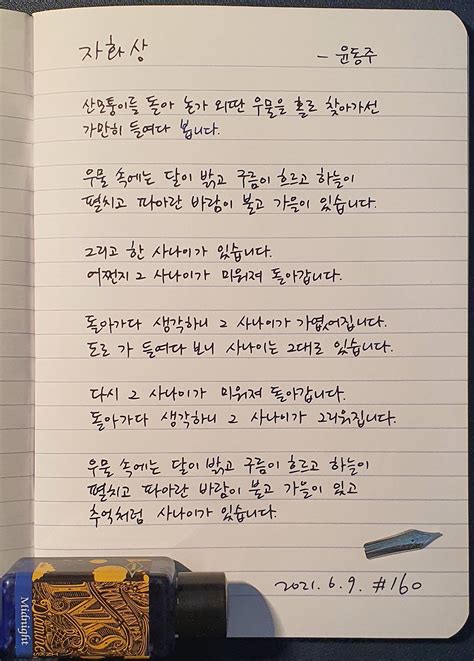 자화상 - 윤동주
산모퉁이를 돌아 논가 외딴 우물을 홀로 찾아가선
가만히 들여다 봅니다.
우물 속에는 달이 밝고 구름이 흐르고 하늘이
펼치고 파아란 바람이 불고 가을이 있습니다.
그리고 한 사나이가 있습니다.
어쩐지 그 사나이가 미워져 돌아갑니다.
돌아가다 생각하니 그 사나이가 가엾어집니다.
도로 가 들여다 보니 사나이는 그대로 있습니다.
다시 그 사나이가 미워져 돌아갑니다.
돌아가다 생각하니 그 사나이가 그리워집니다.
우물 속에는 달이 밝고 구름이 흐르고 하늘이
펼치고 파아란 바람이 불고 가을이 있고
추억처럼 사나이가 있습니다.
2021. 6. 9. #160
INKS
Midnight